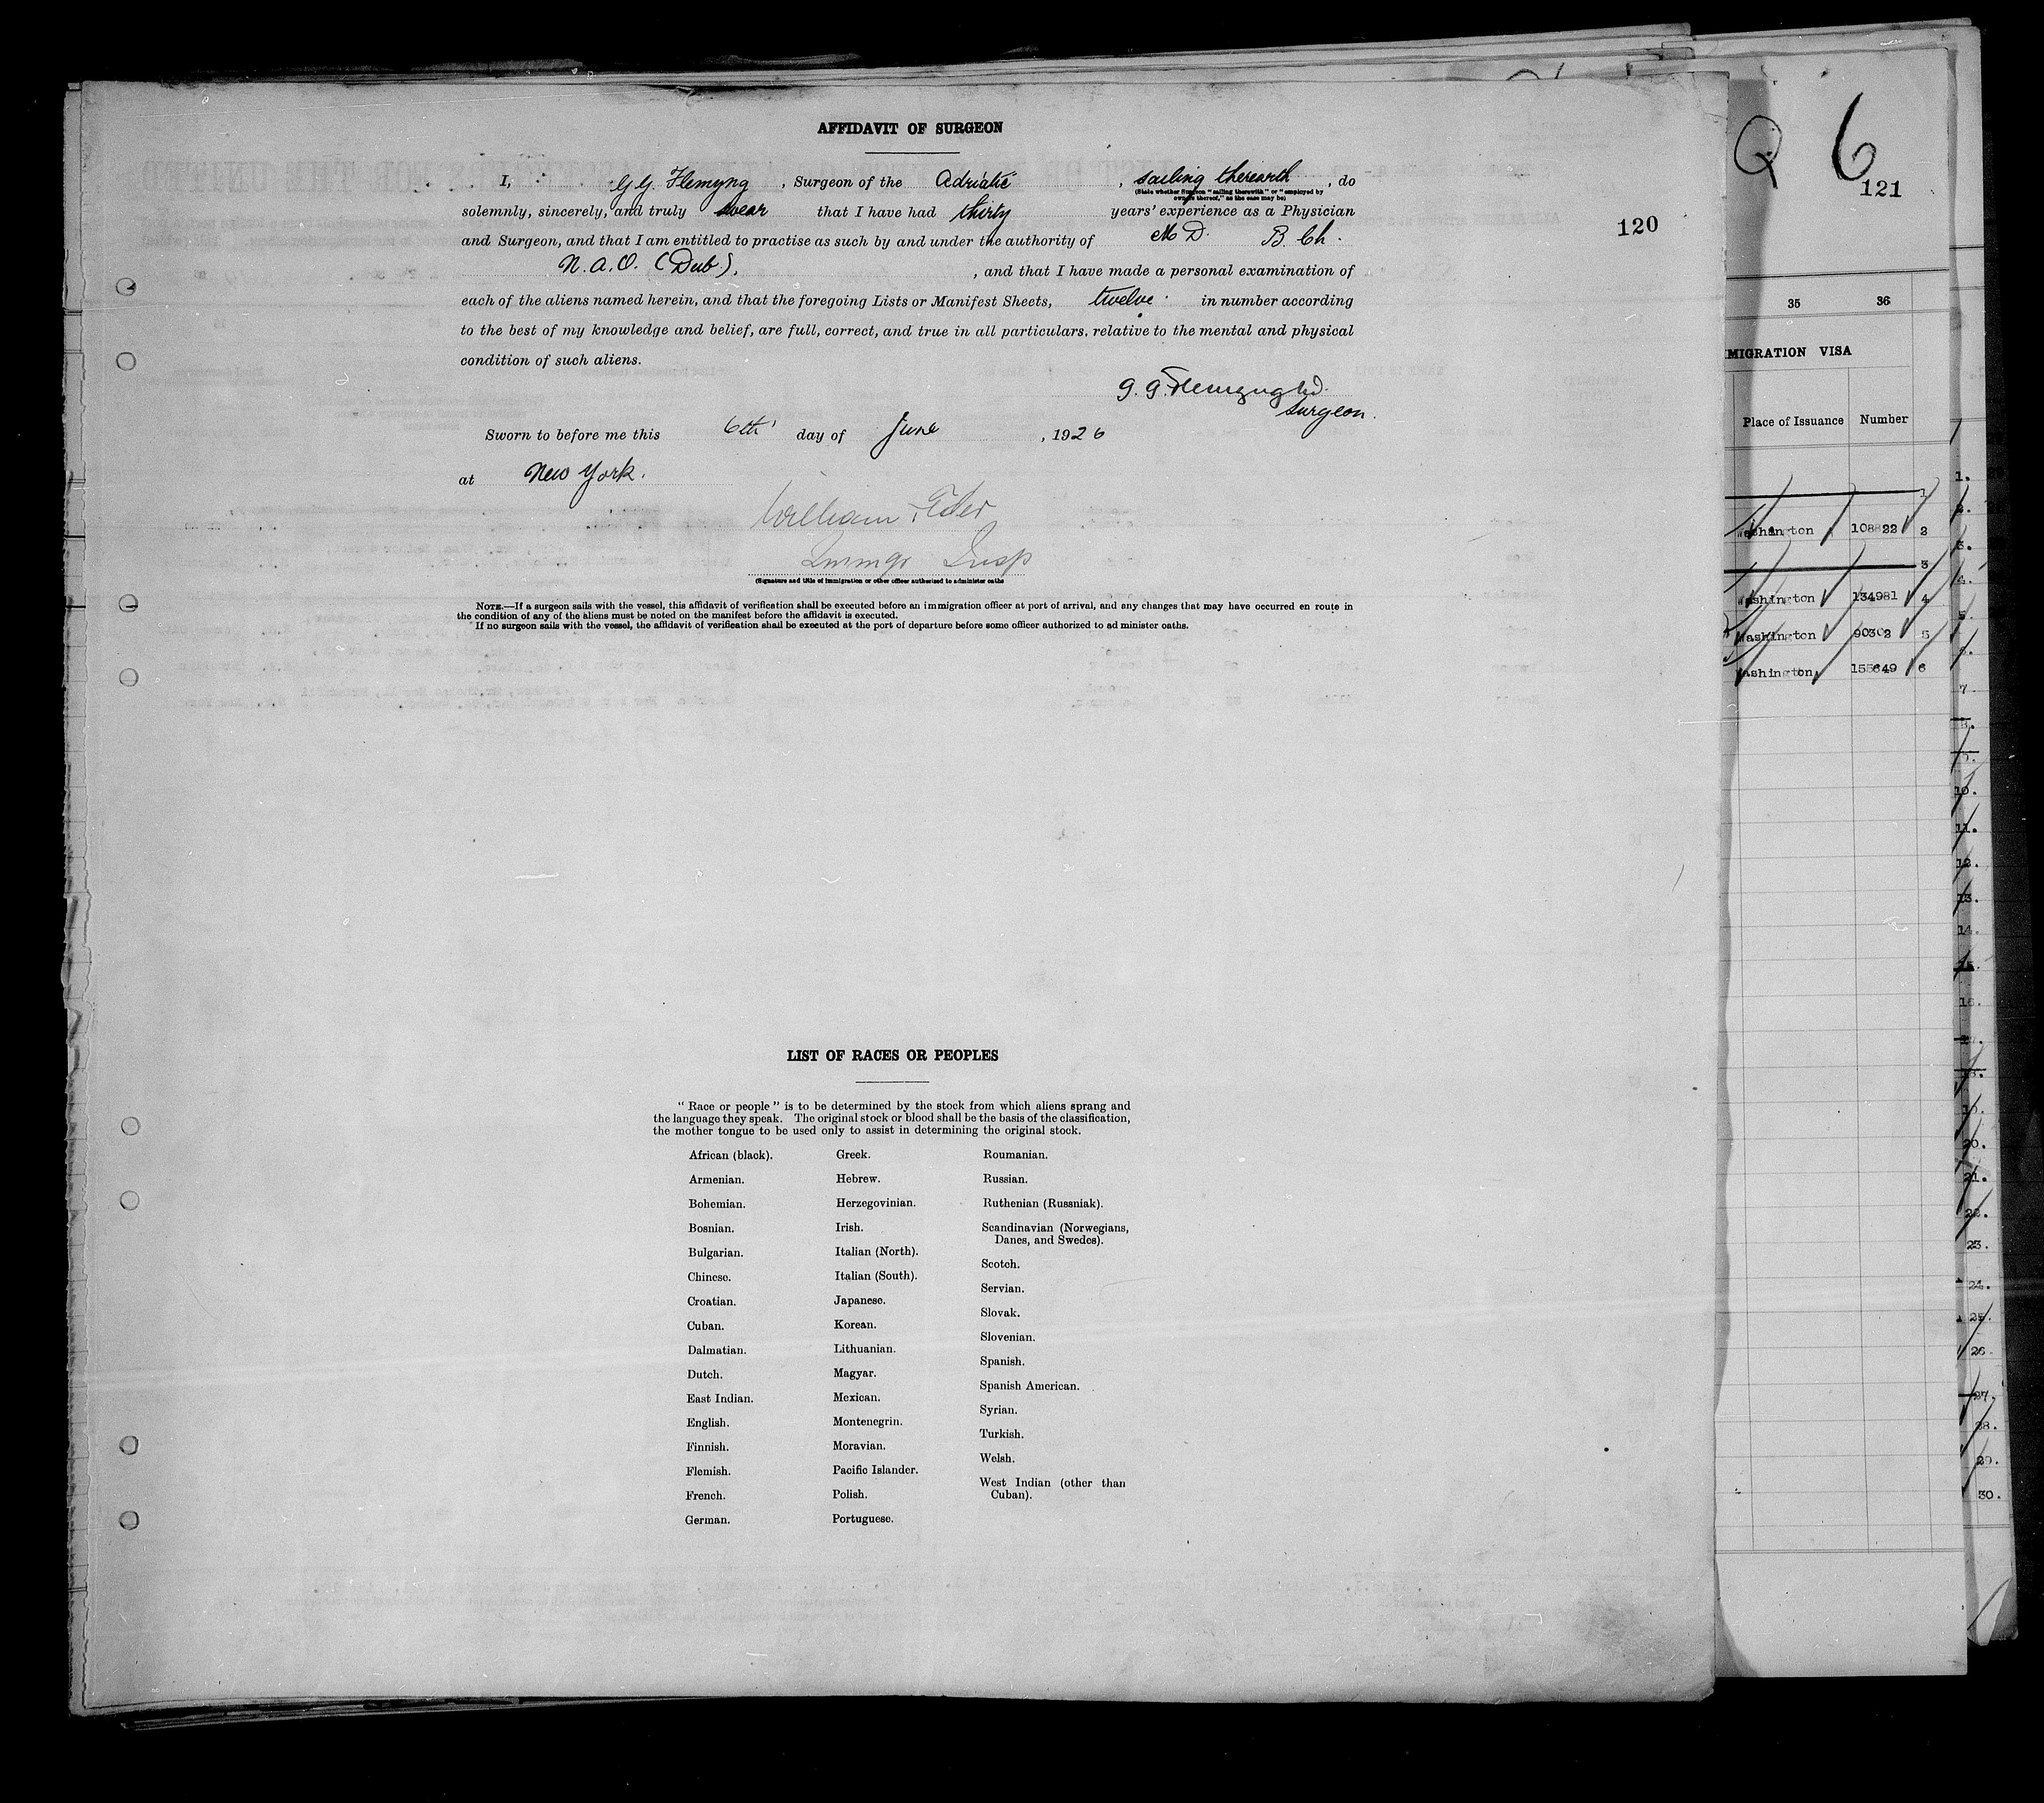 AFFIDAVIT OF SURGEON
I, G G. Flemyng, Surgeon of the Adriatic, sailing therewith, do
(State whether Surgeon "sailing therewith" or "employed by
owners thereof," as the case may be)
solemnly, sincerely, and truly swear that I have had thirty years' experience as a Physician
and Surgeon, and that I am entitled to practise as such by and under the authority of M D. B. Ch.
N.A.O. (Dub)., and that I have made a personal examination of
each of the aliens named herein, and that the foregoing Lists or Manifest Sheets, twelve in number according
to the best of my knowledge and belief, are full, correct, and true in all particulars, relative to the mental and physical
condition of such aliens.
G. G. Flemyng
Surgeon.
Sworn to before me this 6th day of June, 1926
at New York.
William
Immgr Insp
(Signature and title of immigration or other officer authorized to administer oaths
NOTE.—If a surgeon sails with the vessel, this affidavit of verification shall be executed before an immigration officer at port of arrival, and any changes that may have occurred en route in
the condition of any of the aliens must be noted on the manifest before the affidavit is executed.
If no surgeon sails with the vessel, the affidavit of verification shall be executed at the port of departure before some officer authorized to ad minister oaths.
120
LIST OF RACES OR PEOPLES
"Race or people" is to be determined by the stock from which aliens sprang and
the language they speak. The original stock or blood shall be the basis of the classification,
the mother tongue to be used only to assist in determining the original stock.
African (black).
Armenian.
Bohemian.
Bosnian.
Bulgarian.
Chinese.
Croatian.
Cuban.
Dalmatian.
Dutch.
East Indian.
English.
Finnish.
Flemish.
French.
German.
Greek.
Hebrew.
Herzegovinian.
Irish.
Italian (North).
Italian (South).
Japanese.
Korean.
Lithuanian.
Magyar.
Mexican.
Montenegrin.
Moravian.
Pacific Islander.
Polish.
Portuguese.
Roumanian.
Russian.
Ruthenian (Russniak).
Scandinavian (Norwegians,
Danes, and Swedes).
Scotch.
Servian.
Slovak.
Slovenian.
Spanish.
Spanish American.
Syrian.
Turkish.
Welsh.
West Indian (other than
Cuban).
6
121
35 36
MIGRATION VISA
Place of Issuance Number
1
Washington 108822 2
3
Washington 134981 4
Washington 90302 5
ashington 155649 6
1.
2.
3.
4.
5.
6.
7.
8.
9.
10.
11.
12.
13.
14.
15.
16.
17.
18.
19.
20.
21.
22.
23.
24.
25.
26.
27.
28.
29.
30.